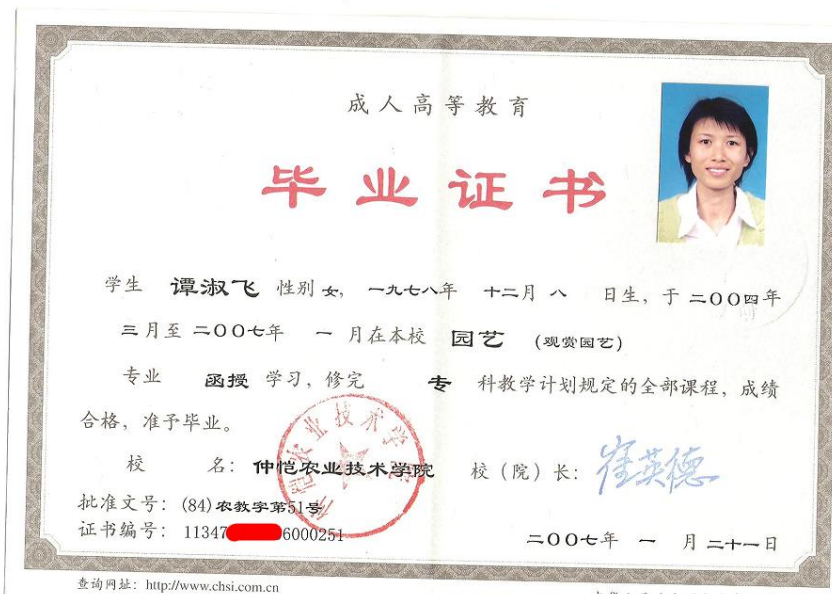 成人高等教育
毕业证书
学生 谭淑飞 性别 女, 一九七八年 十二月 八 日生, 于 二〇〇四年
三月至 二〇〇七年 一 月在本校 园艺 (观赏园艺)
专业 函授 学习, 修完 专 科教学计划规定的全部课程, 成绩
合格, 准予毕业。
校 名: 仲恺农业技术学院 校(院)长: 崔英德
仲恺农业技术学院
批准文号: (84)农教字第51号
证书编号: 11347 6000251
二〇〇七年 一 月 二十一日
查询网址: http://www.chsi.com.cn